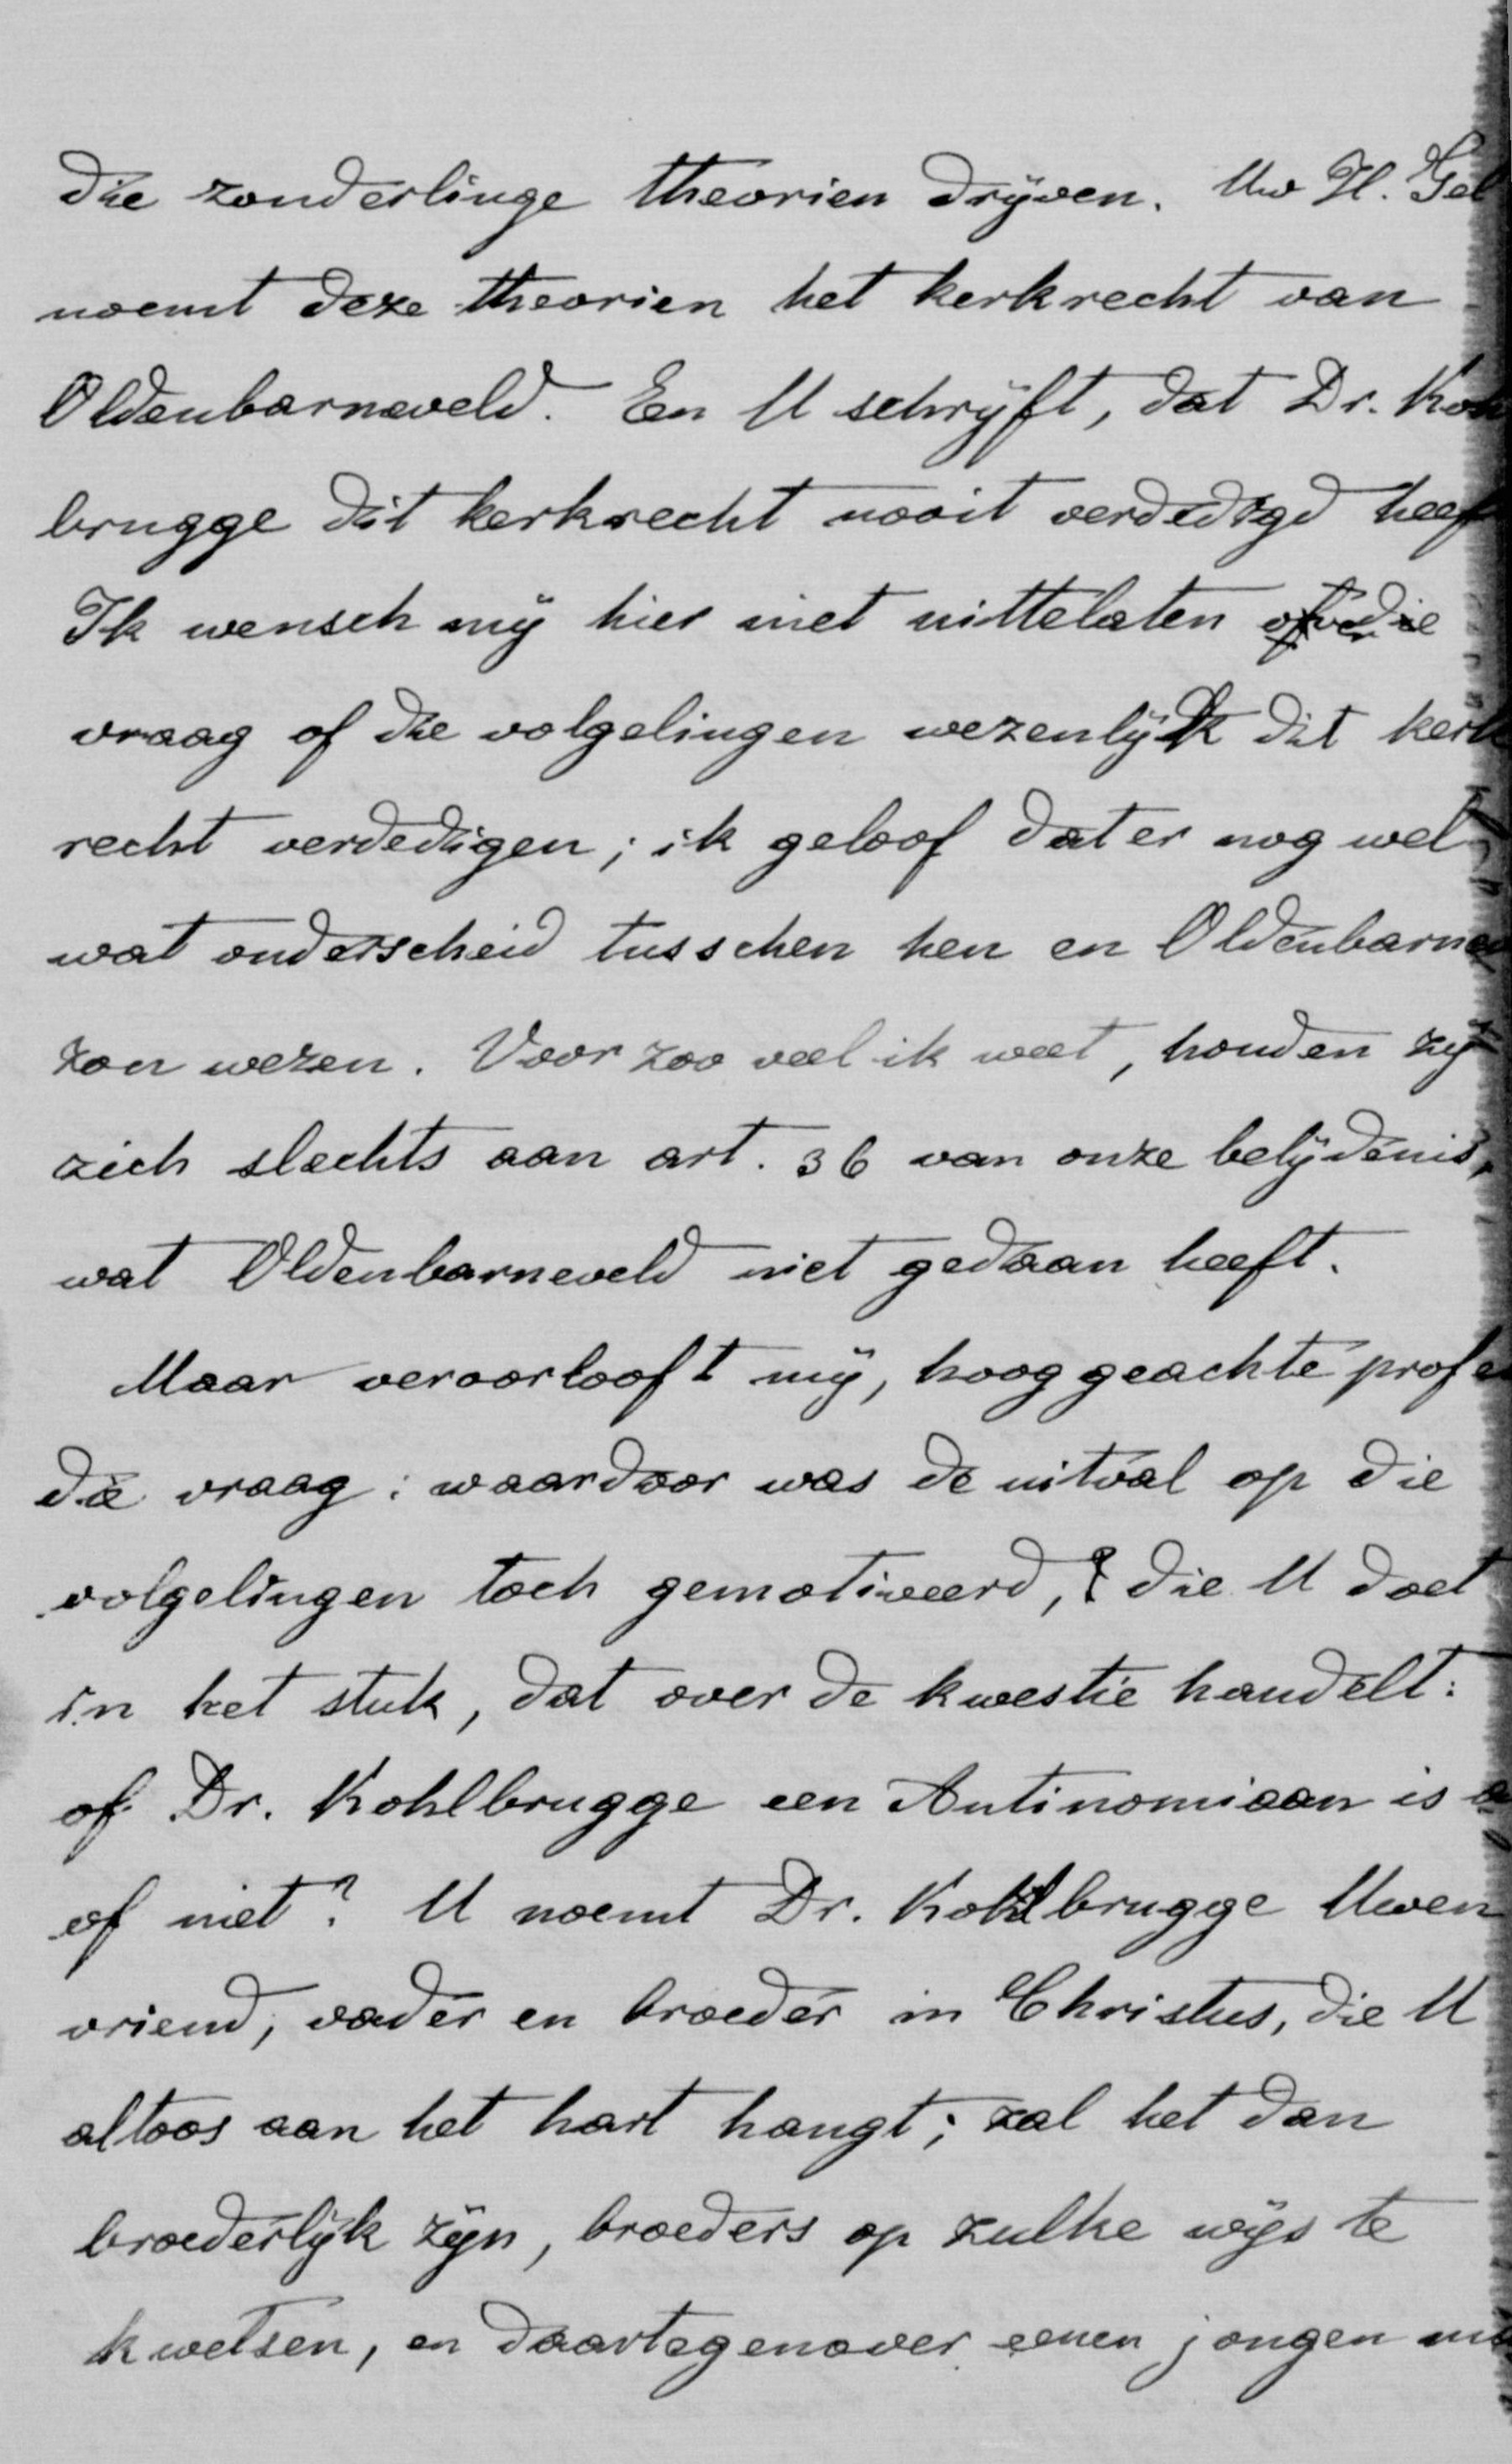 die zonderlinge theorien drijven. Uw H. Gel
noemt deze theorien het kerkrecht van
Oldenbarneveld. En U schrijft, dat Dr. Koh
brugge dit kerkrecht nooit verdedigd heef
Ik wensch mij hier niet uittelaten over die
vraag of die volgelingen wezenlijk dit kerk
recht verdedigen; ik geloof dat er nog wel
wat onderscheid tusschen hen en Oldenbarne
zou wezen. Voor zoo veel ik weet, houden zij
zich slechts aan art. 36 van onze belijdenis,
wat Oldenbarneveld niet gedaan heeft.
Maar veroorlooft mij, hooggeachte profe
die vraag: waardoor was de uitval op die
volgelingen toch gemotiveerd, die U doet
in het stuk, dat over de kwestie handelt:
of Dr. Kohlbrugge een Antinomiaan is
of niet? U noemt Dr. Kohlbrugge Uwen
vriend, vader en broeder in Christus, die U
altoos aan het hart hangt; zal het dan
broederlijk zijn, broeders op zulke wijs te
kwetsen, en daartegenover eenen jongen